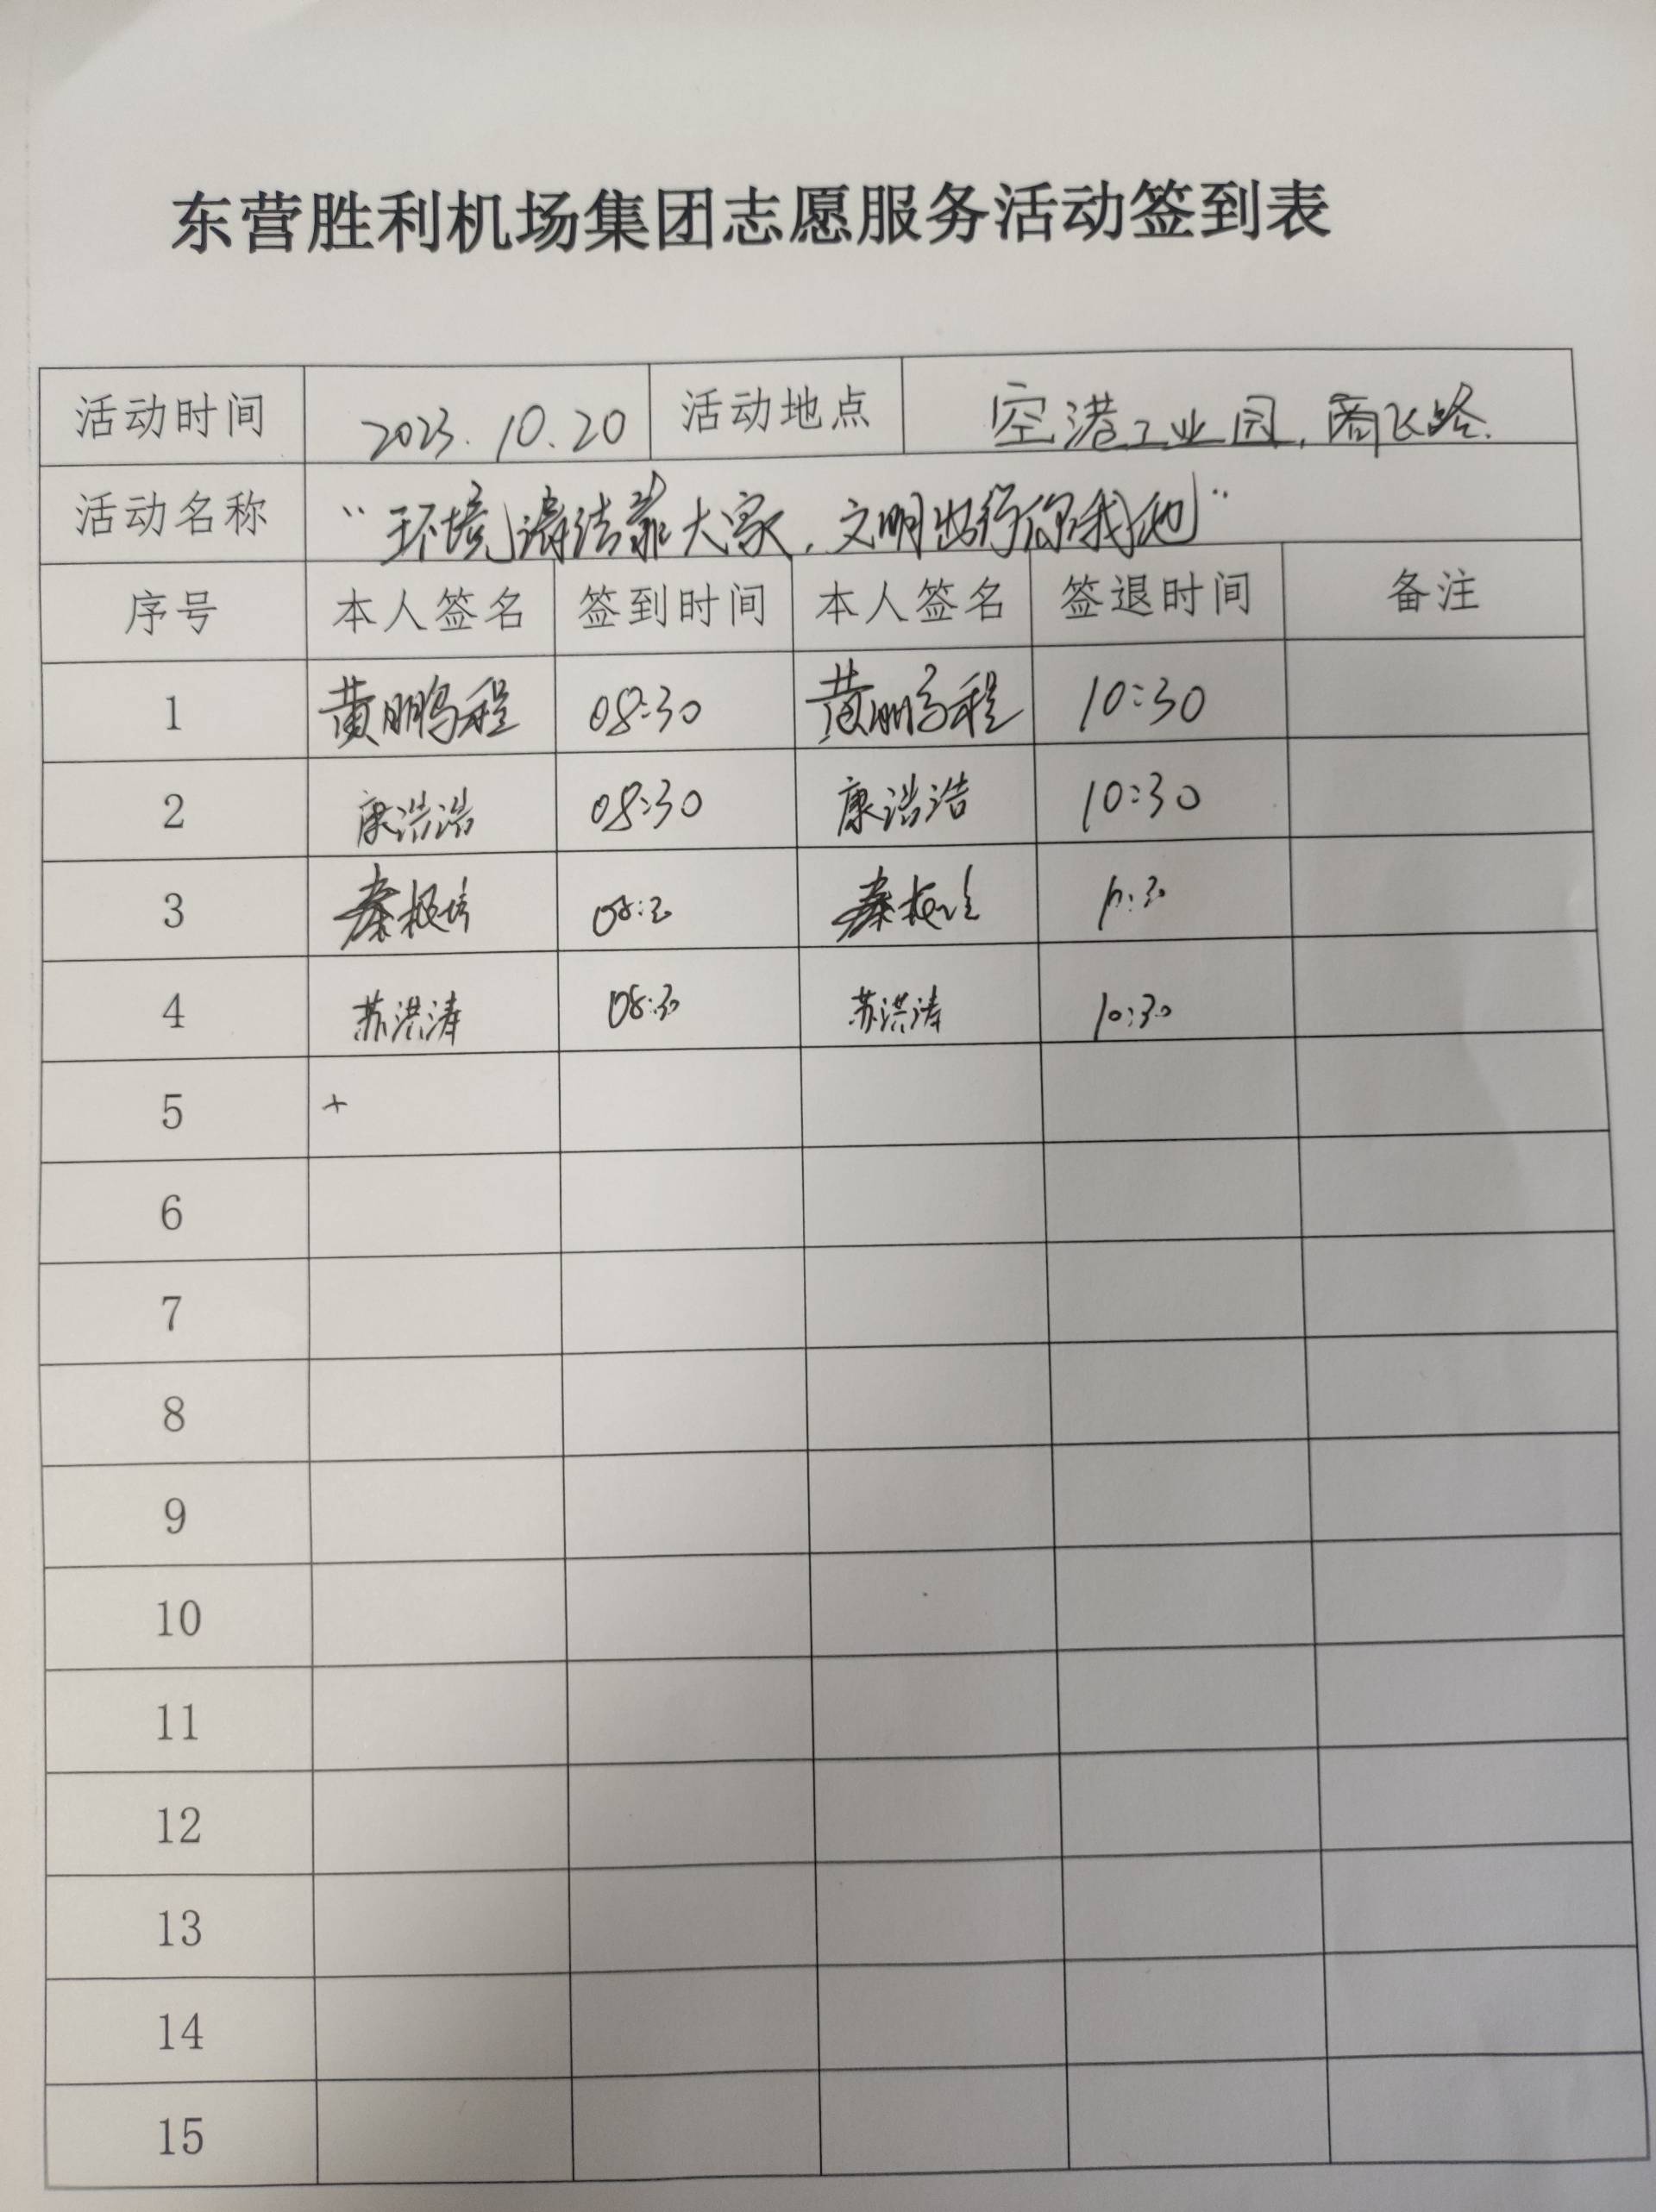 东营胜利机场集团志愿服务活动签到表
活动时间 2023.10.20 活动地点 空港工业园,商飞路.
活动名称 “环境清洁靠大家,文明出行你我他”
序号 本人签名 签到时间 本人签名 签退时间 备注
1 黄鹏程 08:30 黄鹏程 10:30
2 康浩浩 08:30 康浩浩 10:30
3 秦 08:30 秦 10:30
4 苏洪涛 08:30 苏洪涛 10:30
5
6
7
8
9
10
11
12
13
14
15